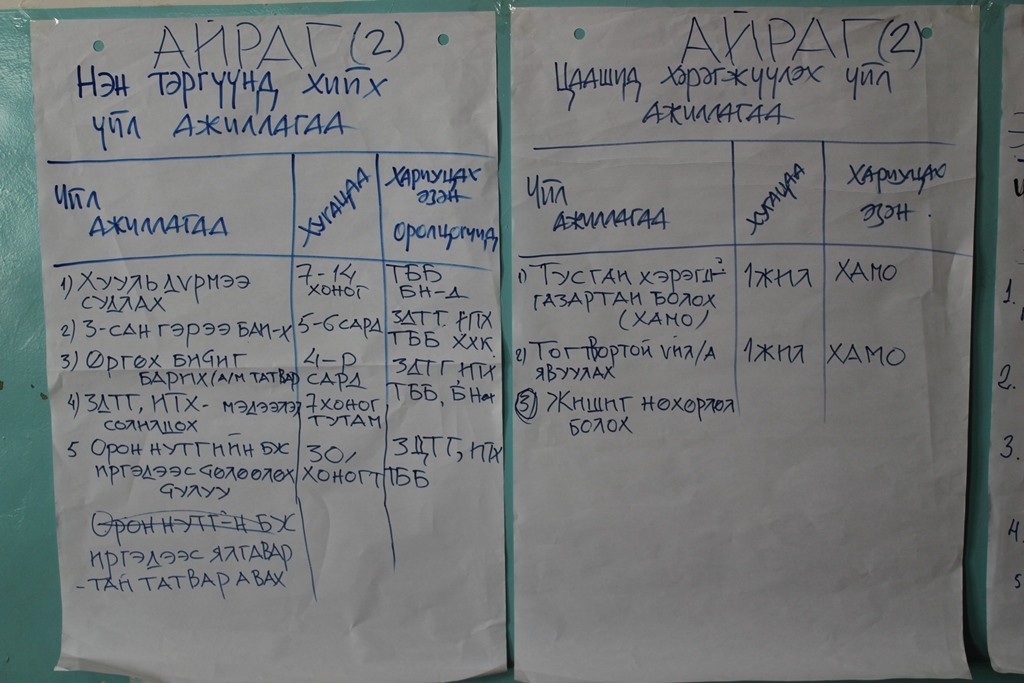 АЙРАГ (2)
Нэн тэргүүнд хийх
үйл ажиллагаа
Үйл
ажиллагаа
Хугацаа
Хариуцах
эзэн
оролцогчид
1) Хууль дүрмээ
судлах
7-14
хоног
ТББ
БН-д
2) 3-сан гэрээ бай-х
5-6 сард
ЗДТГ. ИТХ
ТББ ХХК
3) Өргөх бичиг
барих (а/м татвар
4-р
сард
ЗДТГ, ИТХ
4) ЗДТГ, ИТХ- мэдээлэл
солилцох
7 хоног
тутам
ТББ, БН
5 Орон нутгийн БЖ
иргэдээс чөлөөлөх
30/
хоногт
ЗДТГ, ИТХ
ТББ
Орон нутг-н БЖ
иргэдээс ялгавар
-тай татвар авах
АЙРАГ (2)
Цаашид хэрэгжүүлэх үйл
ажиллагаа
Үйл
ажиллагаа
Хугацаа
Хариуцах
эзэн
1) Тусгай хэрэгц
газартай болох
(ХАМО)
1 жил
ХАМО
2) Тогтвортой үйл/а
явуулах
1 жил
ХАМО
3) Жишиг нөхөрлөл
болох
1.
2.
3.
4.
5